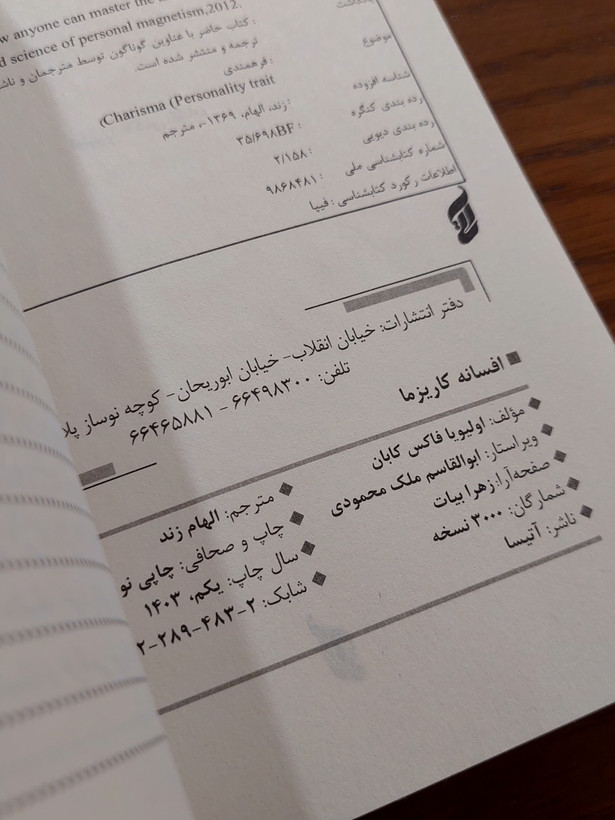 w anyone can master the
d science of personal magnetism,2012.
یادداشت : کتاب حاضر با عناوین گوناگون توسط مترجمان و
ترجمه و منتشر شده است.
موضوع : فرهمندی
(Charisma (Personality trait
شناسه افزوده : زند، الهام، ۱۳۶۹-، مترجم
رده بندی کنگره : ۳۵/۶۹۸BF
رده بندی دیویی : ۲/۱۵۸
شماره کتابشناسی ملی : ۹۸۶۸۴۸۱
اطلاعات رکورد کتابشناسی : فیپا
دفتر انتشارات: خیابان انقلاب- خیابان ابوریحان- کوچه نوساز
تلفن: ۶۶۴۹۸۳۰۰ - ۶۶۴۶۵۸۸۱
افسانه کاریزما
مؤلف: اولیویا فاکس کابان
ویراستار: ابوالقاسم ملک محمودی
صفحه‌آرا: زهرا بیات
شمارگان: ۳۰۰۰ نسخه
ناشر: آتیسا
مترجم: الهام زند
چاپ و صحافی: چاپی نو
سال چاپ: یکم، ۱۴۰۳
شابک: ۲-۴۸۳-۲۸۹-۲